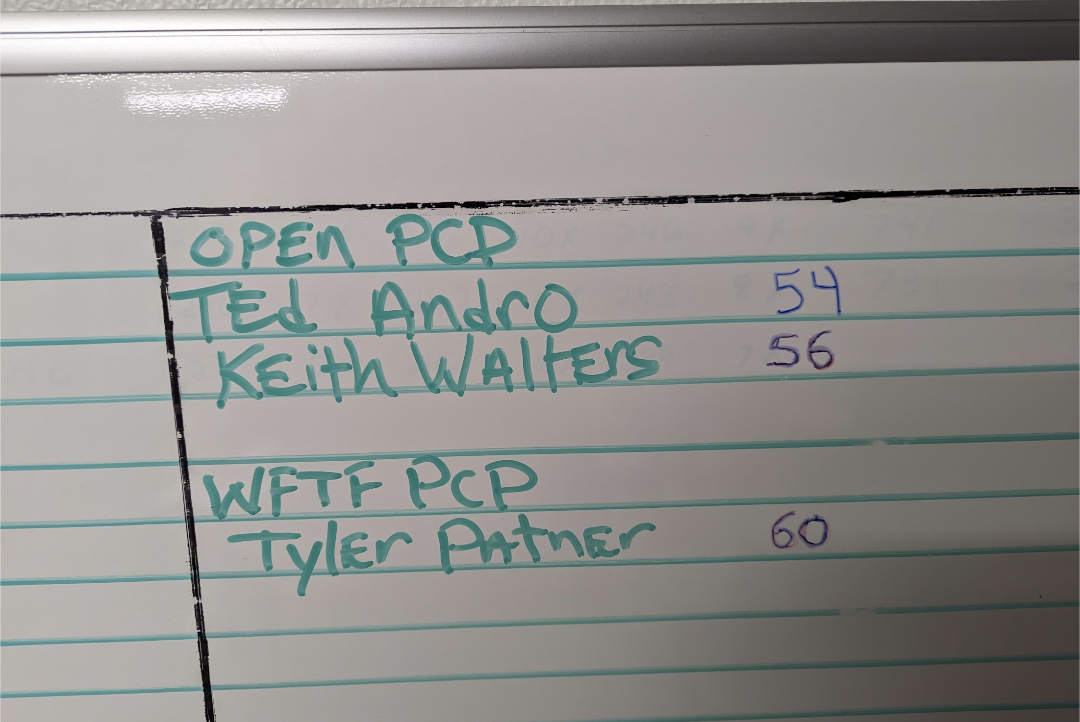 OPEN PCP
TEd Andro 54
KEith WAltErs 56
WFTF PCP
TylEr PAtnEr 60